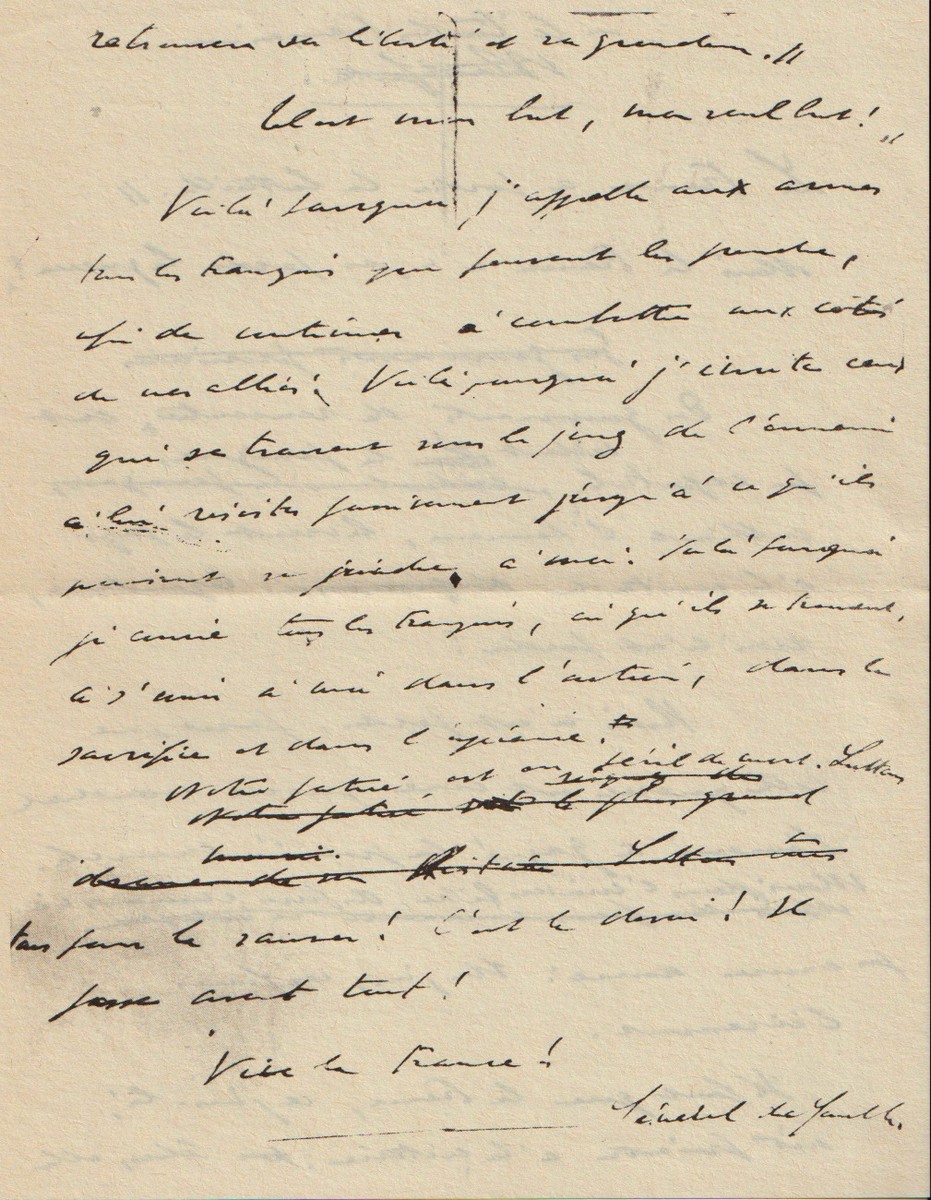 retrouvera sa liberté et sa grandeur.
Tel est mon but, mon seul but !
Voilà pourquoi j'appelle aux armes
tous les Français qui peuvent les prendre,
afin de continuer à combattre aux côtés
de nos alliés. Voilà pourquoi j'invite ceux
qui se trouvent sous le joug de l'ennemi
à lui résister passivement jusqu'à ce qu'ils
puissent se joindre à moi. Voilà pourquoi
je convie tous les Français, où qu'ils se trouvent,
à s'unir à moi dans l'action, dans le
sacrifice et dans l'espérance.
Notre patrie est en péril de mort. Luttons
Notre patrie le plus grand
drame de son histoire. Luttons tous
tous pour la sauver ! C'est le devoir ! Il
passe avant tout !
Vive la France !
Général de Gaulle.